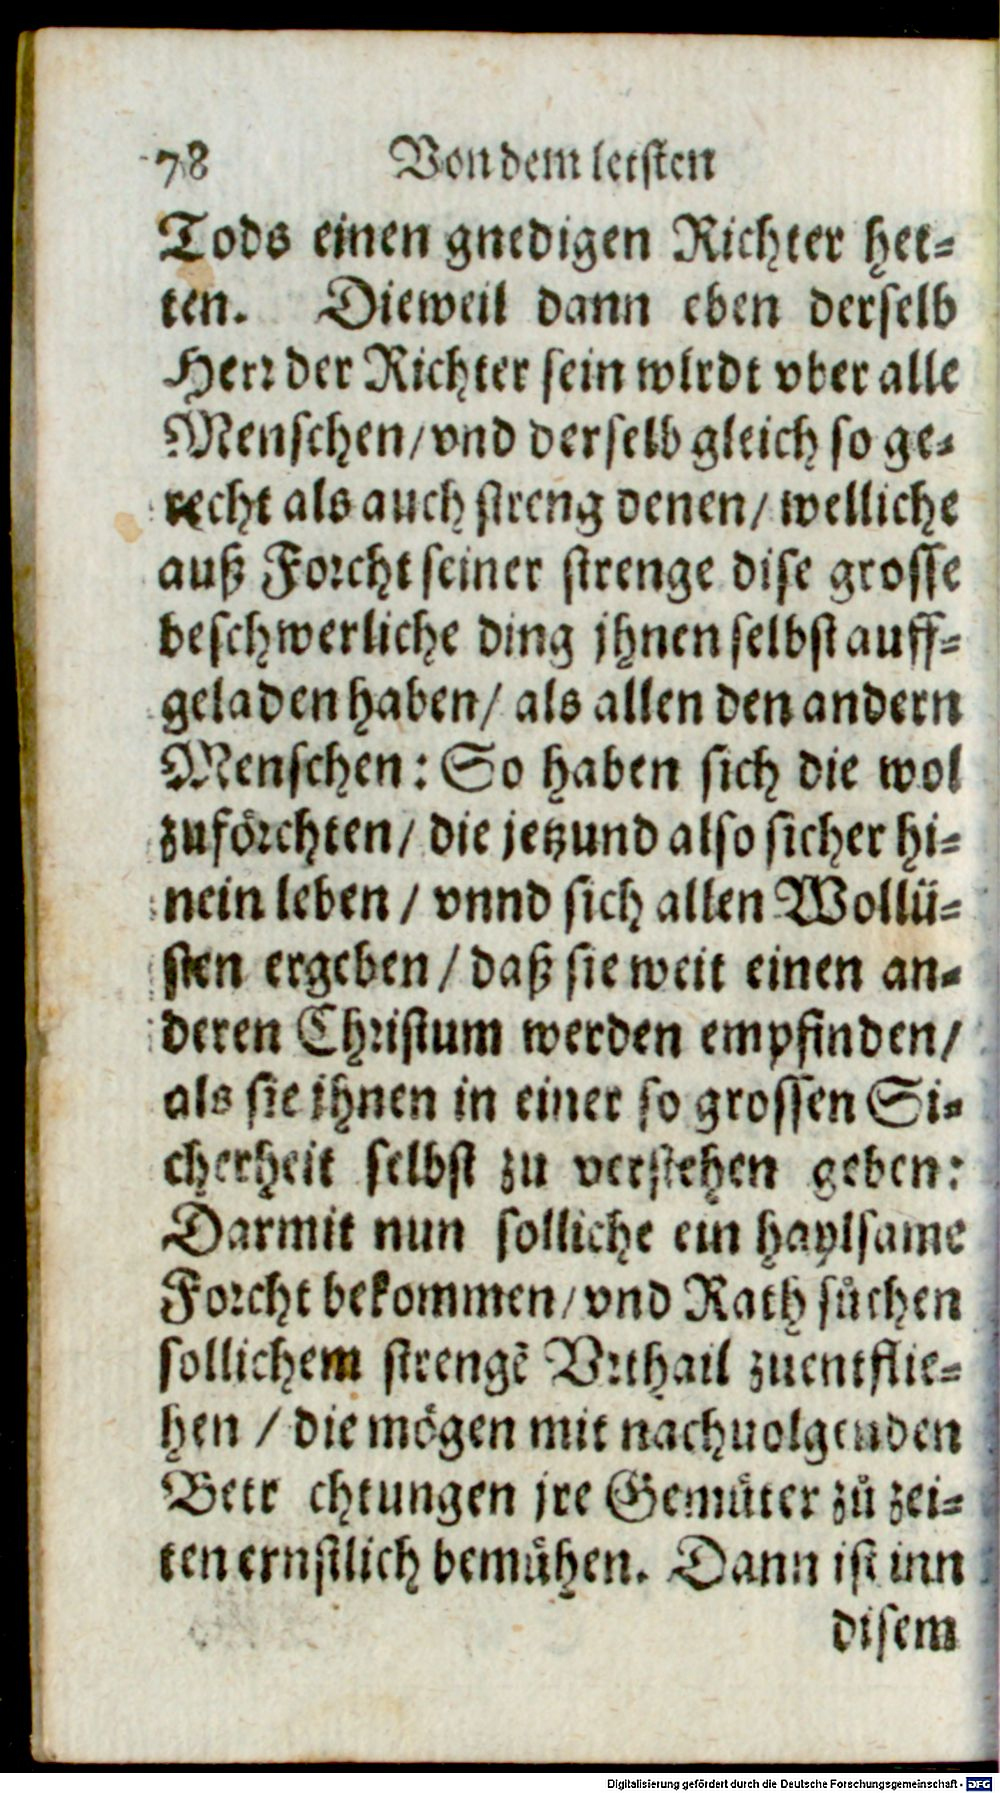 78 Von dem letsten
Tods einen gnedigen Richter het-
ten. Dieweil dann eben derselb
Herr der Richter sein wirdt vber alle
Menschen/vnd derselb gleich so ge-
recht als auch streng denen/ welliche
auß Forcht seiner strenge dise grosse
beschwerliche ding jhnen selbst auff-
geladen haben/ als allen den andern
Menschen: So haben sich die wol
zuförchten/ die jetzund also sicher hi-
nein leben / vnnd sich allen Wollü-
sten ergeben / daß sie weit einen an-
deren Christum werden empfinden/
als sie jhnen in einer so grossen Si-
cherheit selbst zu verstehen geben:
Darmit nun solliche ein haylsame
Forcht bekommen/vnd Rath sůchen
sollichem strengē Vrthail zuentflie-
hen / die mögen mit nachuolgenden
Betr chtungen jre Gemüter zů zei-
ten ernstlich bemühen. Dann ist inn
disem
Digitalisierung gefördert durch die Deutsche Forschungsgemeinschaft - DFG